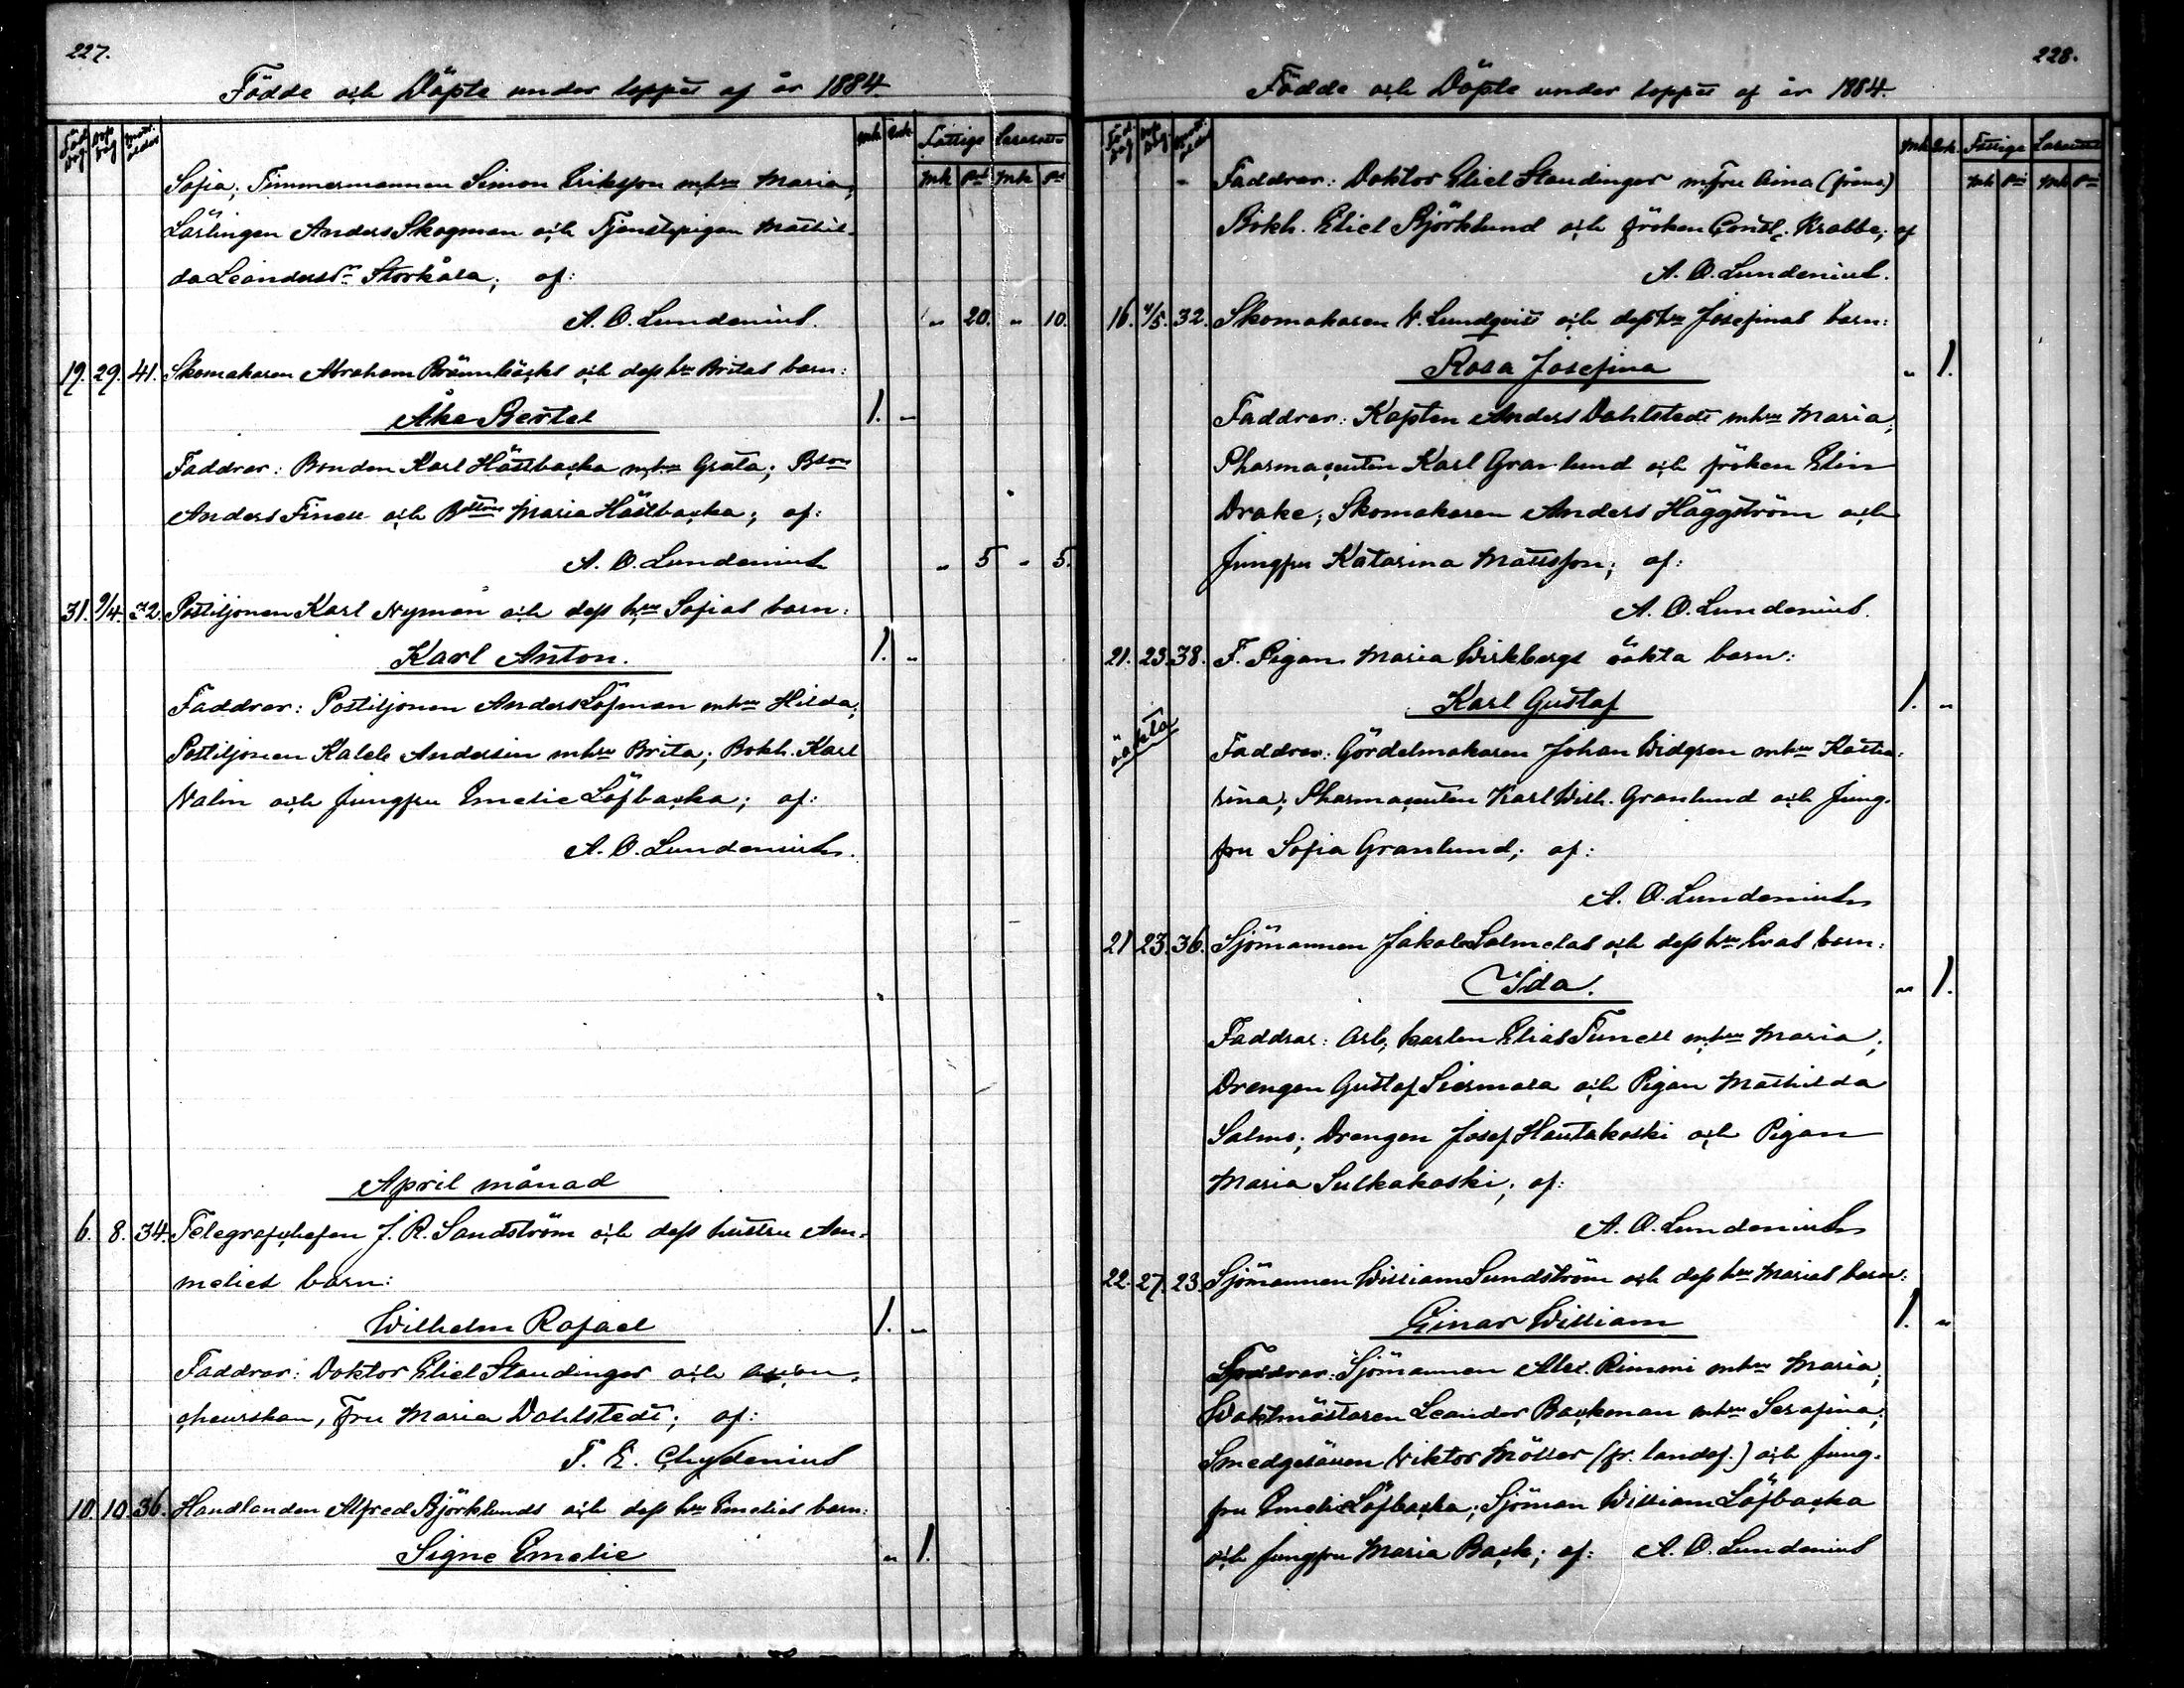 227.
Födde och Döpte under loppet af år 1884.
Föd. dag Döp. dag Modr. ålder Mk. Qvk. Fattige Lasarettet
Mk Pi Mk Pi
Sofia; Timmermannen Simon Eriksson m. hru Maria;
Lärlingen Anders Skogman och Tjenstepigan Mathil-
da Leandersdr Storkåla; af:
A. O. Lundenius. " 20. " 10.
19. 29. 41. Skomakaren Abraham Brännbäcks och dess hru Britas barn:
Åke Bertel 1. "
Faddrar: Bonden Karl Hästbacka m. hru Greta; Bson
Anders Finell och Bdottern Maria Hästbacka; af:
A. O. Lundenius " 5 " 5.
31. 9/4. 32. Postiljonen Karl Nyman och dess hru Sofias barn:
Karl Anton. 1. "
Faddrar: Postiljonen Anders Löfman m hru Hilda;
Postiljonen Kaleb Andersin m hru Brita; Bokh. Karl
Nalin och Jungfru Emelie Löfbacka; af:
A. O. Lundenius.
April månad
6. 8. 34. Telegrafchefen J. R. Sandström och dess hustru
melies barn:
Wilhelm Rafael 1. "
Faddrar: Doktor Eliel Standinger och
cheurskan, Fru Maria Dahlstedt; af:
F. E. Chydenius
10. 10. 36. Handlanden Alfred Björklunds och dess hru Emelies barn:
Signe Emelie " 1.
228.
Födde och Döpte under loppet af år 1884.
Föd. dag Döp. dag Modr. ålder Mk. Qvk. Fattige Lasarettet
Mk Pi Mk Pi
Faddrar: Doktor Eliel Standinger m. fru Aina (frånv.)
Bokh. Eliel Björklund och fröken Krabbe; af
A. O. Lundenius.
16. 4/5. 32. Skomakaren N. Lundqvist och dess hru Josefinas barn:
Rosa Josefina " 1.
Faddrar: Kapten Anders Dahlstedt m hru Maria;
Pharmaceuten Karl Granlund och fröken Elin
Drake; Skomakaren Anders Häggström och
Jungfru Katarina Mattsson; af:
A. O. Lundenius.
21. 23. 38. F. Pigan Maria Wirkbergs oäkta barn:
Karl Gustaf 1. "
oäkta
Faddrar: Gördelmakaren Johan Widgren m hru Katha-
rina; Pharmaceuten Karl Wilh. Granlund och Jung-
fru Sofia Granlund; af:
A. O. Lundenius
21 23. 36. Sjömannen Jakob Salmelas och dess hru Evas barn:
Ida. " 1.
Faddrar: Arb. karlen Elias Tunell m. hru Maria;
Drengen Gustaf Siermala och Pigan Mathilda
Salmo; Drengen Josef Hautakoski och Pigan
Maria Sulkakoski; af:
A. O. Lundenius
22. 27. 23. Sjömannen William Sundström och dess hru Marias barn:
Einar William 1. "
Faddrar: Sjömannen Alex. Rimmi m hru Maria;
Waktmästaren Leander Backman m hru Serafina;
Smedgesällen Viktor Möller (fr. landsf.) och Jung-
fru Emelie Löfbacka; Sjöman William Löfbacka
och Jungfru Maria Back; af: A. O. Lundenius